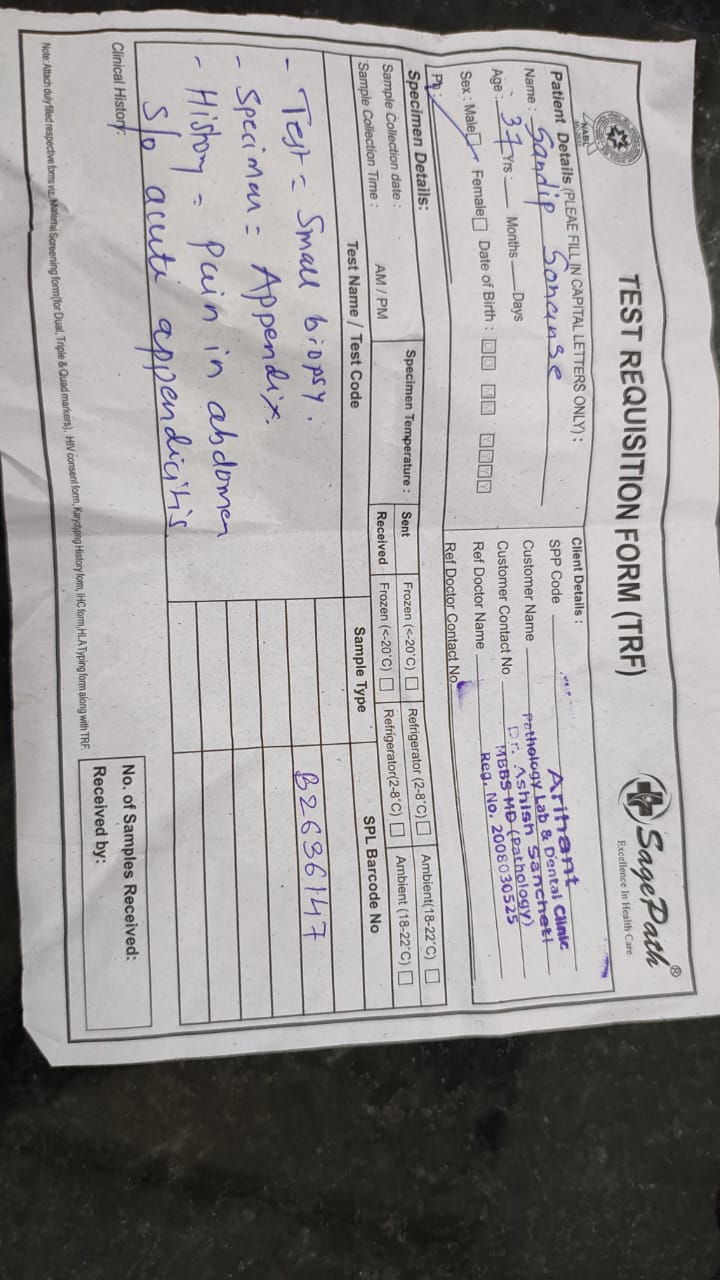 TEST REQUISITION FORM (TRF)
SagePath®
Excellence In Health Care
NABL
Patient Details (PLEAE FILL IN CAPITAL LETTERS ONLY) :
Name : Sandip Sonanse
Age : 37 Yrs : Months Days
Sex : Male Female Date of Birth : D D M M Y Y Y Y
Ph :
Client Details :
SPP Code
Customer Name
Customer Contact No
Ref Doctor Name
Ref Doctor Contact No
Arihant
Pathology Lab & Dental Clinic
Dr. Ashish Sancheti
MBBS MD (Pathology)
Reg. No. 2008030525
Specimen Details:
Sample Collection date :
Sample Collection Time : AM / PM
Specimen Temperature :
Sent Frozen (<-20°C) Refrigerator (2-8°C) Ambient(18-22°C)
Received Frozen (<-20°C) Refrigerator(2-8°C) Ambient (18-22°C)
Test Name / Test Code Sample Type SPL Barcode No
- Test = Small biopsy. B2636147
- Specimen = Appendix.
- History = Pain in abdomen
S/o acute appendicitis.
Clinical History:
No. of Samples Received:
Received by:
Note: Attach duly filled respective forms viz. Maternal Screening form(for Dual, Triple & Quad markers), HIV consent form, Karyotyping History form, IHC form, HLA Typing form along with TRF